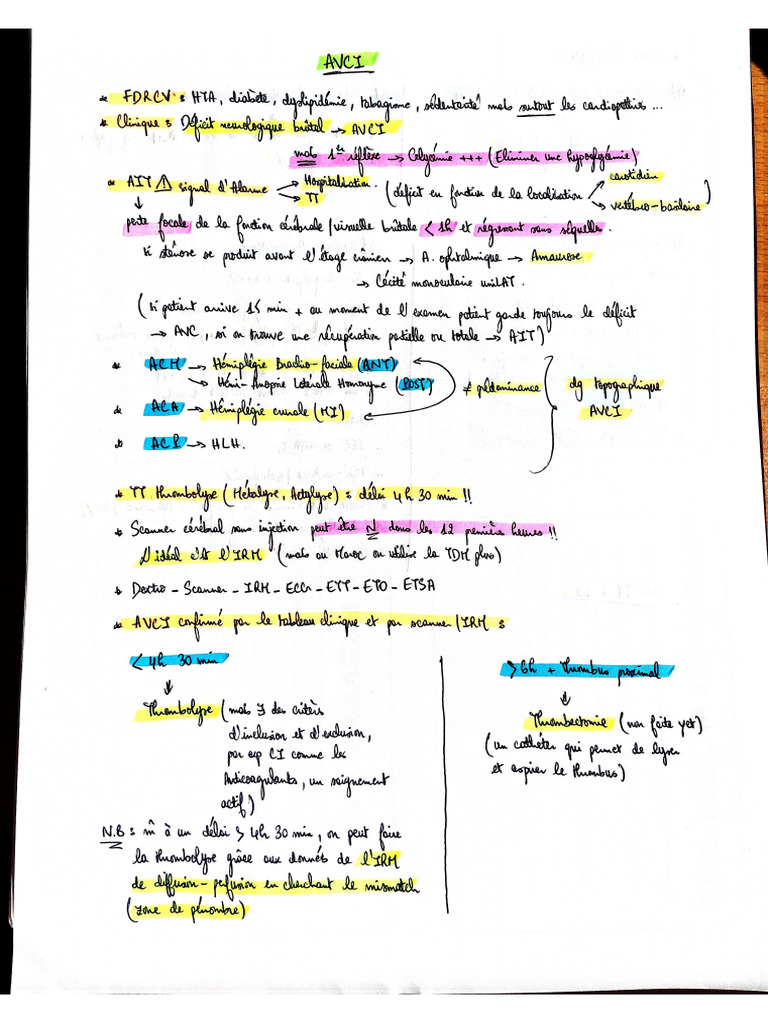 AVCI
* FDRCV : HTA, diabète, dyslipidémie, tabagisme, sédentarité mais surtout les cardiopathies ...
* Clinique : Déficit neurologique brutal → AVCI
mais 1er réflexe → Glycémie +++ (Eliminer une hypoglycémie)
* AIT ⚠ signal d'Alarme → Hospitalisation. → TT (déficit en fonction de la localisation → carotidien → vertébro-basilaire)
↓
perte focale de la fonction cérébrale/visuelle brutale < 1h et régressant sans séquelles.
si sténose se produit avant l'étage crânien → A. ophtalmique → Amaurose
→ Cécité monoculaire uniLAT.
(si patient arrive 15 min + au moment de l'examen patient garde toujours le déficit
→ AVC, si on trouve une récupération partielle ou totale → AIT)
* ACM → Hémiplégie Brachio-faciale (ANT)
→ Hémi-Anopsie Latérale Homonyme (POST)
≠ prédominance
dg topographique
AVCI
* ACA → Hémiplégie crurale (MI)
* ACP → HLH.
* TT thrombolyse (Métalyse, Actylyse) : délai 4h 30 min !!
* Scanner cérébral sans injection peut être N dans les 12 premières heures !!
L'idéal c'est l'IRM (mais au Maroc on utilise la TDM plus)
* Dextro - Scanner - IRM - ECG - ETT - ETO - ETSA
* AVCI confirmé par le tableau clinique et par scanner/IRM :
< 4h 30 min
↓
Thrombolyse (mais ∃ des critères
d'inclusion et d'exclusion,
par exp CI comme les
Anticoagulants, un saignement
actif)
N.B : m̂ à un délai > 4h 30 min, on peut faire
la thrombolyse grâce aux donnés de l'IRM
de diffusion - perfusion en cherchant le mismatch
(zone de pénombre)
> 6h + thrombus proximal
↓
Thrombectomie (non faite yet)
(un cathéter qui permet de lyser
et aspirer le thrombus)